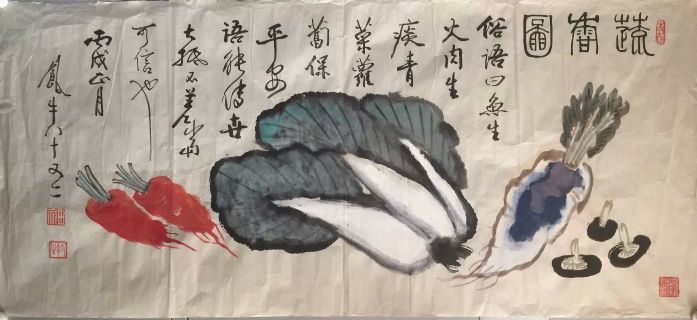 蔬香圖
俗語曰魚生
火肉生
痰青
菜蘿
蔔保
平安
語能傳世
大抵不差尚
可信也
丙戌正月
八十又二